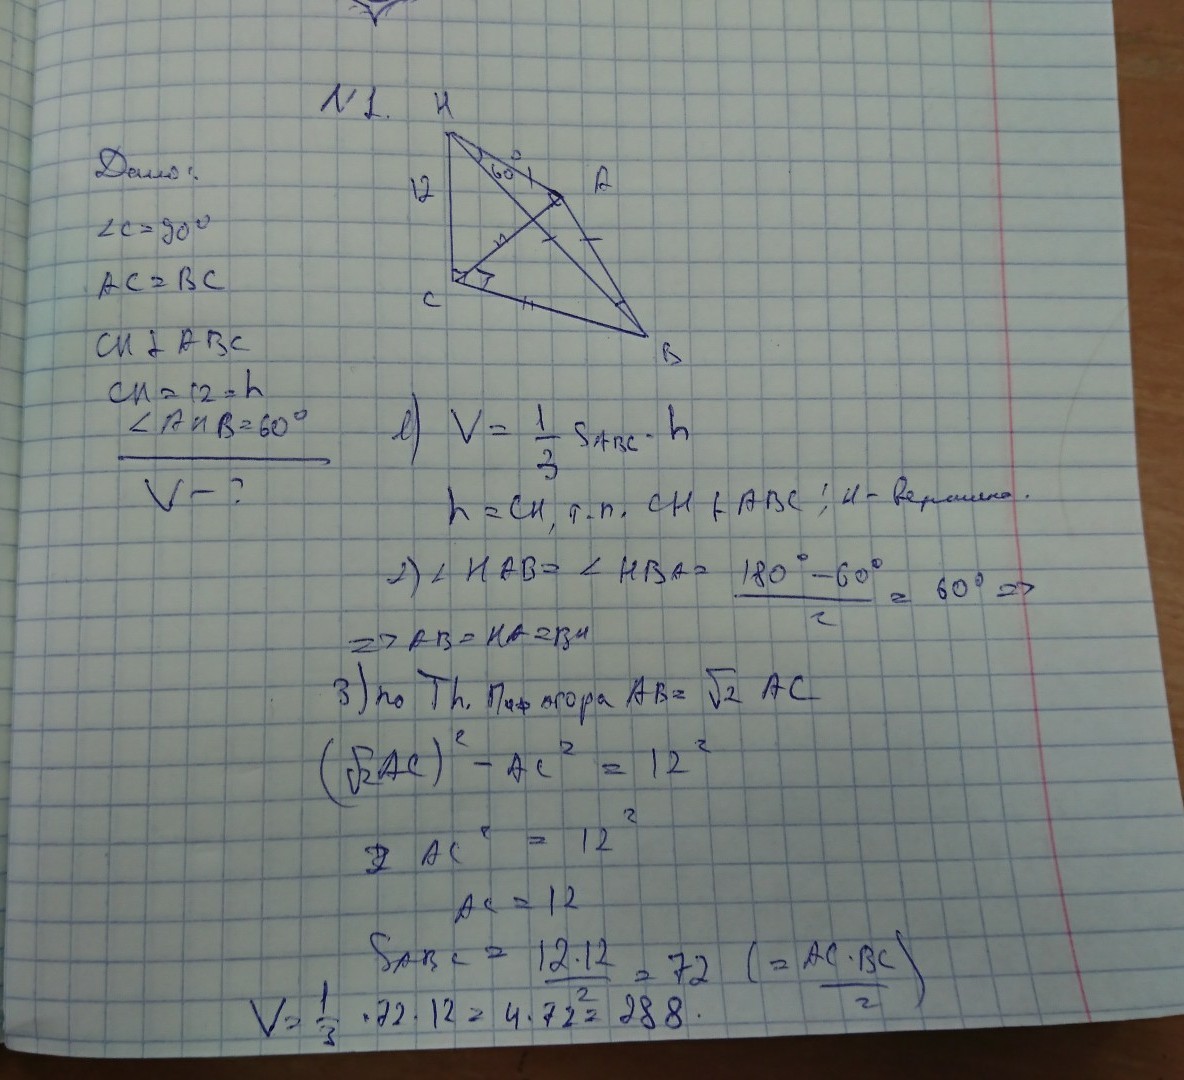 N 1.
H
60°
12
A
C
B
Дано:
∠C = 90°
AC = BC
CH ⊥ ABC
CH = 12 = h
∠AHB = 60°
V - ?
1) V = 1/3 S_ABC · h
h = CH, т.п. CH ⊥ ABC ; H - вершина.
2) ∠HAB = ∠HBA = (180° - 60°)/2 = 60° =>
=> AB = HA = BH
3) по Th. Пифагора AB = √2 AC
(√2 AC)² - AC² = 12²
AC² = 12²
AC = 12
S_ABC = (12·12)/2 = 72 (= (AC·BC)/2)
V = 1/3 · 72 · 12 = 4 · 72 = 288.